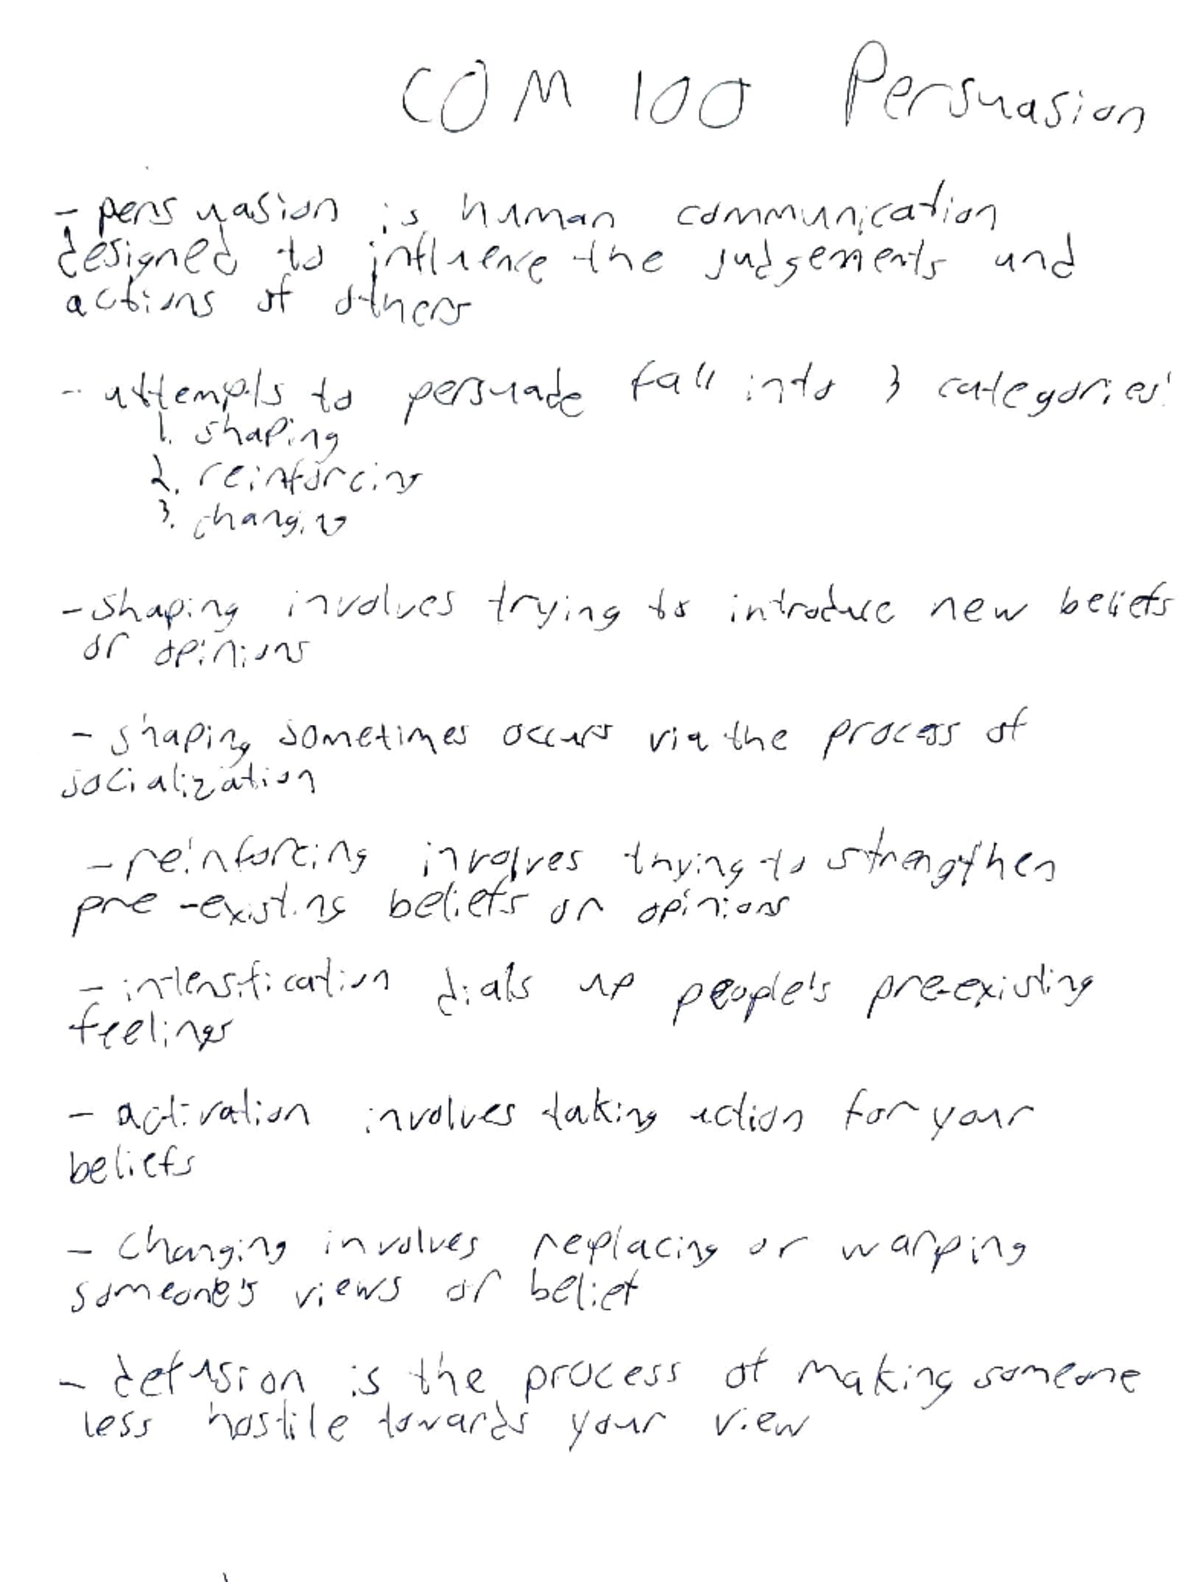 COM 100 Persuasion
- persuasion is human communication
designed to influence the judgements and
actions of others
- attempts to persuade fall into 3 categories:
1. shaping
2. reinforcing
3. changing
- shaping involves trying to introduce new beliefs
or opinions
- shaping sometimes occurs via the process of
socialization
- reinforcing involves trying to strengthen
pre-existing beliefs or opinions
- intensification dials up people's pre-existing
feelings
- activation involves taking action for your
beliefs
- changing involves replacing or warping
someone's views or belief
- defusion is the process of making someone
less hostile towards your view